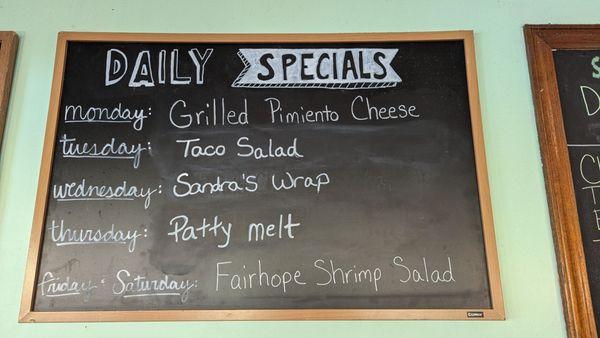 DAILY SPECIALS
monday: Grilled Pimiento Cheese
tuesday: Taco Salad
wednesday: Sandra's Wrap
thursday: Patty melt
friday & Saturday: Fairhope Shrimp Salad